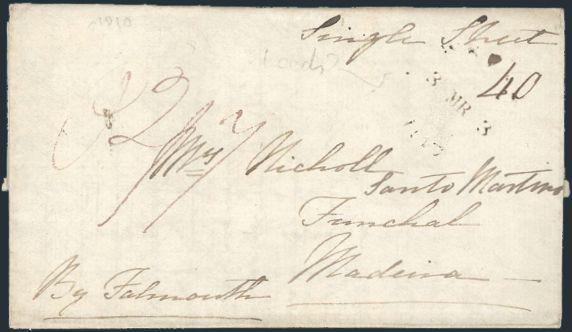 1810
Single Sheet
40
3 MR 3
Mrs Nicholl
Santo Martino
Funchal
Madeira
By Falmouth